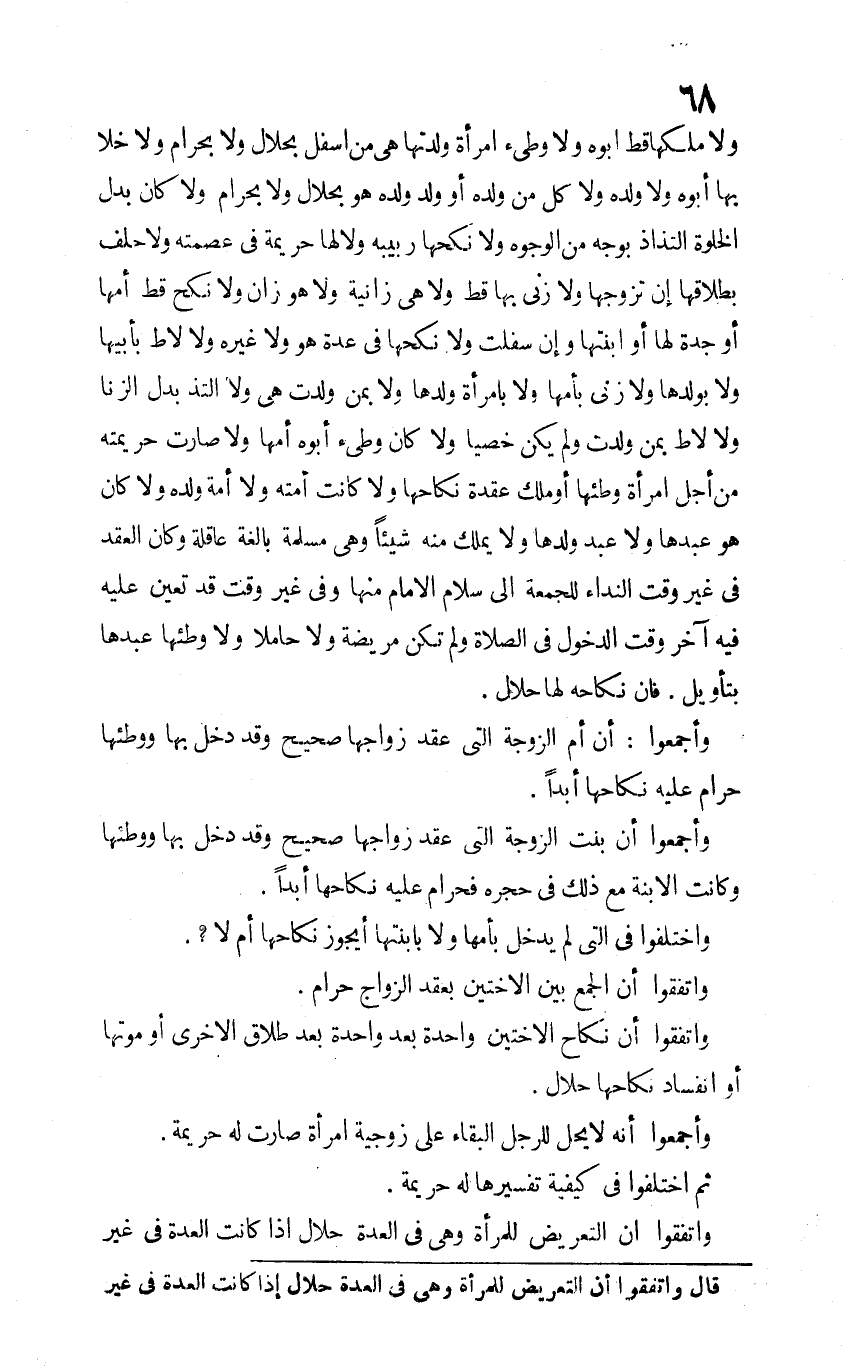 ٦٨
ولا ملكها قط ابوه ولا وطىء امرأة ولدتها هى من اسفل بحلال ولا بحرام ولا خلا
بها أبوه ولا ولده ولا كل من ولده أو ولد ولده هو بحلال ولا بحرام ولا كان بدل
الخلوة التذاذ بوجه من الوجوه ولا نكحها ربيبه ولا لها حريمة فى عصمته ولا حلف
بطلاقها إن تزوجها ولا زنى بها قط ولا هى زانية ولا هو زان ولا نكح قط أمها
أو جدة لها أو ابنتها وإن سفلت ولا نكحها فى عدة هو ولا غيره ولا لاط بأبيها
ولا بولدها ولا زنى بأمها ولا بامرأة ولدها ولا بمن ولدت هى ولا التذ بدل الزنا
ولا لاط بمن ولدت ولم يكن خصيا ولا كان وطىء أبوه أمها ولا صارت حريمته
من أجل امرأة وطئها أو ملك عقدة نكاحها ولا كانت أمته ولا أمة ولده ولا كان
هو عبدها ولا عبد ولدها ولا يملك منه شيئاً وهى مسلمة بالغة عاقلة وكان العقد
فى غير وقت النداء للجمعة الى سلام الامام منها وفى غير وقت قد تعين عليه
فيه آخر وقت الدخول فى الصلاة ولم تكن مريضة ولا حاملا ولا وطئها عبدها
بتأويل . فان نكاحه لها حلال .
وأجمعوا : أن أم الزوجة التى عقد زواجها صحيح وقد دخل بها ووطئها
حرام عليه نكاحها أبداً .
وأجمعوا أن بنت الزوجة التى عقد زواجها صحيح وقد دخل بها ووطئها
وكانت الابنة مع ذلك فى حجره فحرام عليه نكاحها أبداً .
واختلفوا فى التى لم يدخل بأمها ولا بابنتها أيجوز نكاحها أم لا ؟ .
واتفقوا أن الجمع بين الاختين بعقد الزواج حرام .
واتفقوا أن نكاح الاختين واحدة بعد واحدة بعد طلاق الاخرى أو موتها
أو انفساد نكاحها حلال .
وأجمعوا أنه لا يحل للرجل البقاء على زوجية امرأة صارت له حريمة .
ثم اختلفوا فى كيفية تفسيرها له حريمة .
واتفقوا ان التعريض للمرأة وهى فى العدة حلال اذا كانت العدة فى غير
قال واتفقوا أن التعريض للمرأة وهى فى العدة حلال إذا كانت العدة فى غير